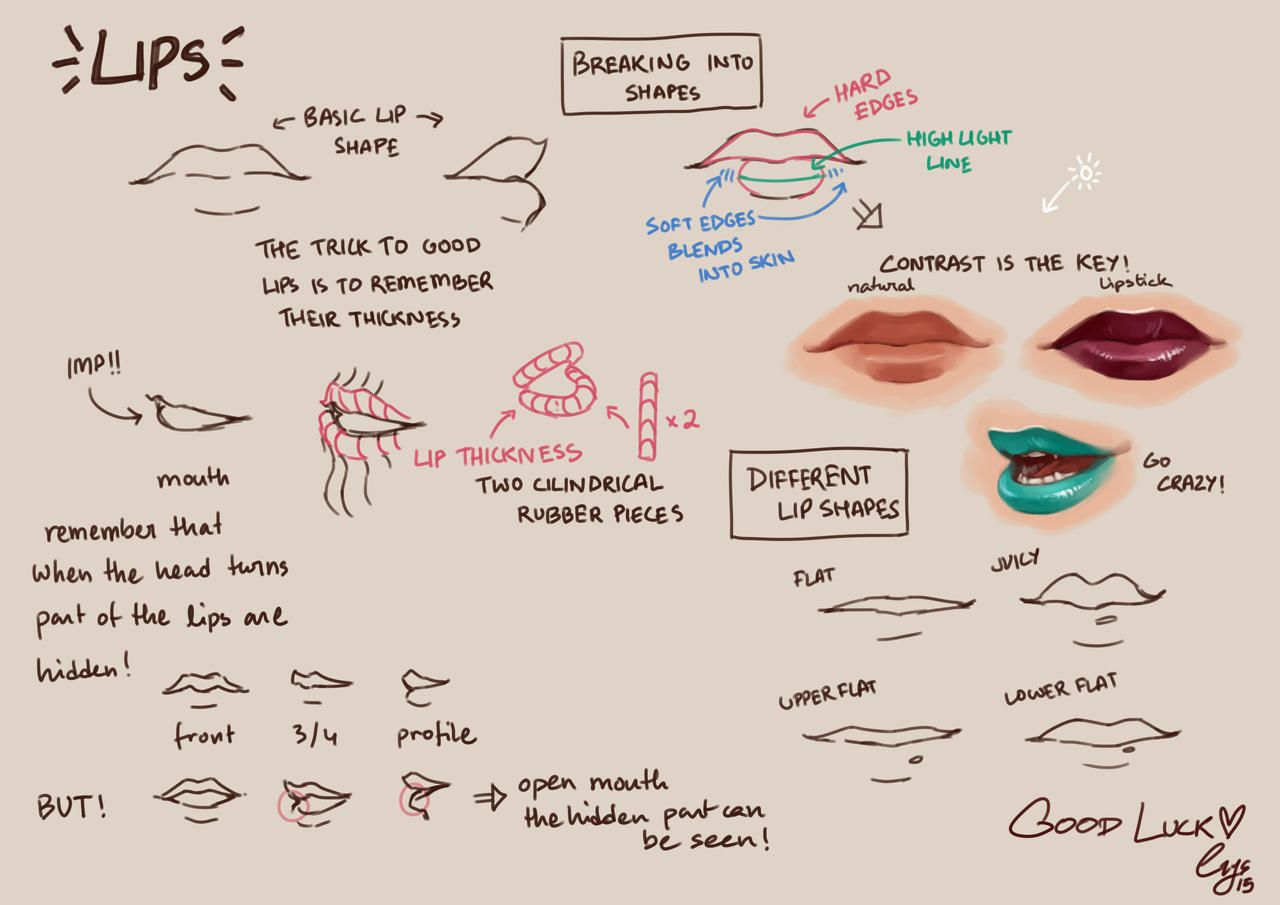 LIPS
BASIC LIP
SHAPE
THE TRICK TO GOOD
LIPS IS TO REMEMBER
THEIR THICKNESS
BREAKING INTO
SHAPES
HARD
EDGES
HIGH LIGHT
LINE
SOFT EDGES
BLENDS
INTO SKIN
CONTRAST IS THE KEY!
natural
Lipstick
GO
CRAZY!
IMP!!
mouth
LIP THICKNESS
x 2
TWO CILINDRICAL
RUBBER PIECES
remember that
when the head turns
part of the lips are
hidden!
front
3/4
profile
BUT!
open mouth
the hidden part can
be seen!
DIFFERENT
LIP SHAPES
FLAT
JUICY
UPPER FLAT
LOWER FLAT
GOOD LUCK
15